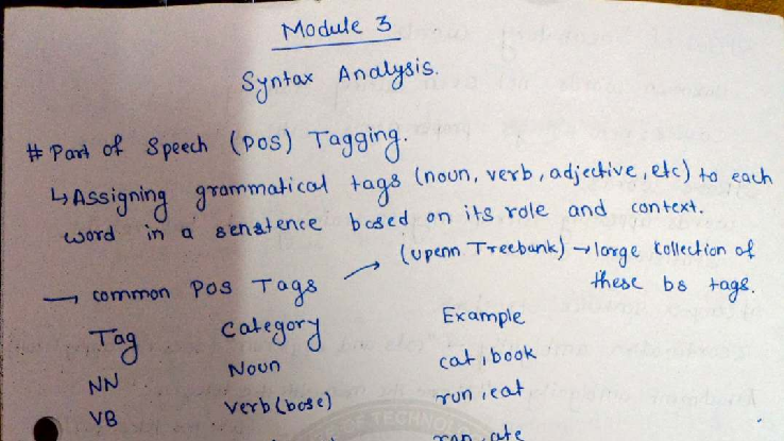 Module 3
Syntax Analysis.
# Part of Speech (POS) Tagging.
↳ Assigning grammatical tags (noun, verb, adjective, etc) to each
word in a senstence based on its role and context.
→ common POS Tags → (upenn Treebank) → large kollection of
these bs tags.
Tag Category Example
NN Noun cat, book
VB verb (base) run, eat
ran, ate
OF TECHNOLO